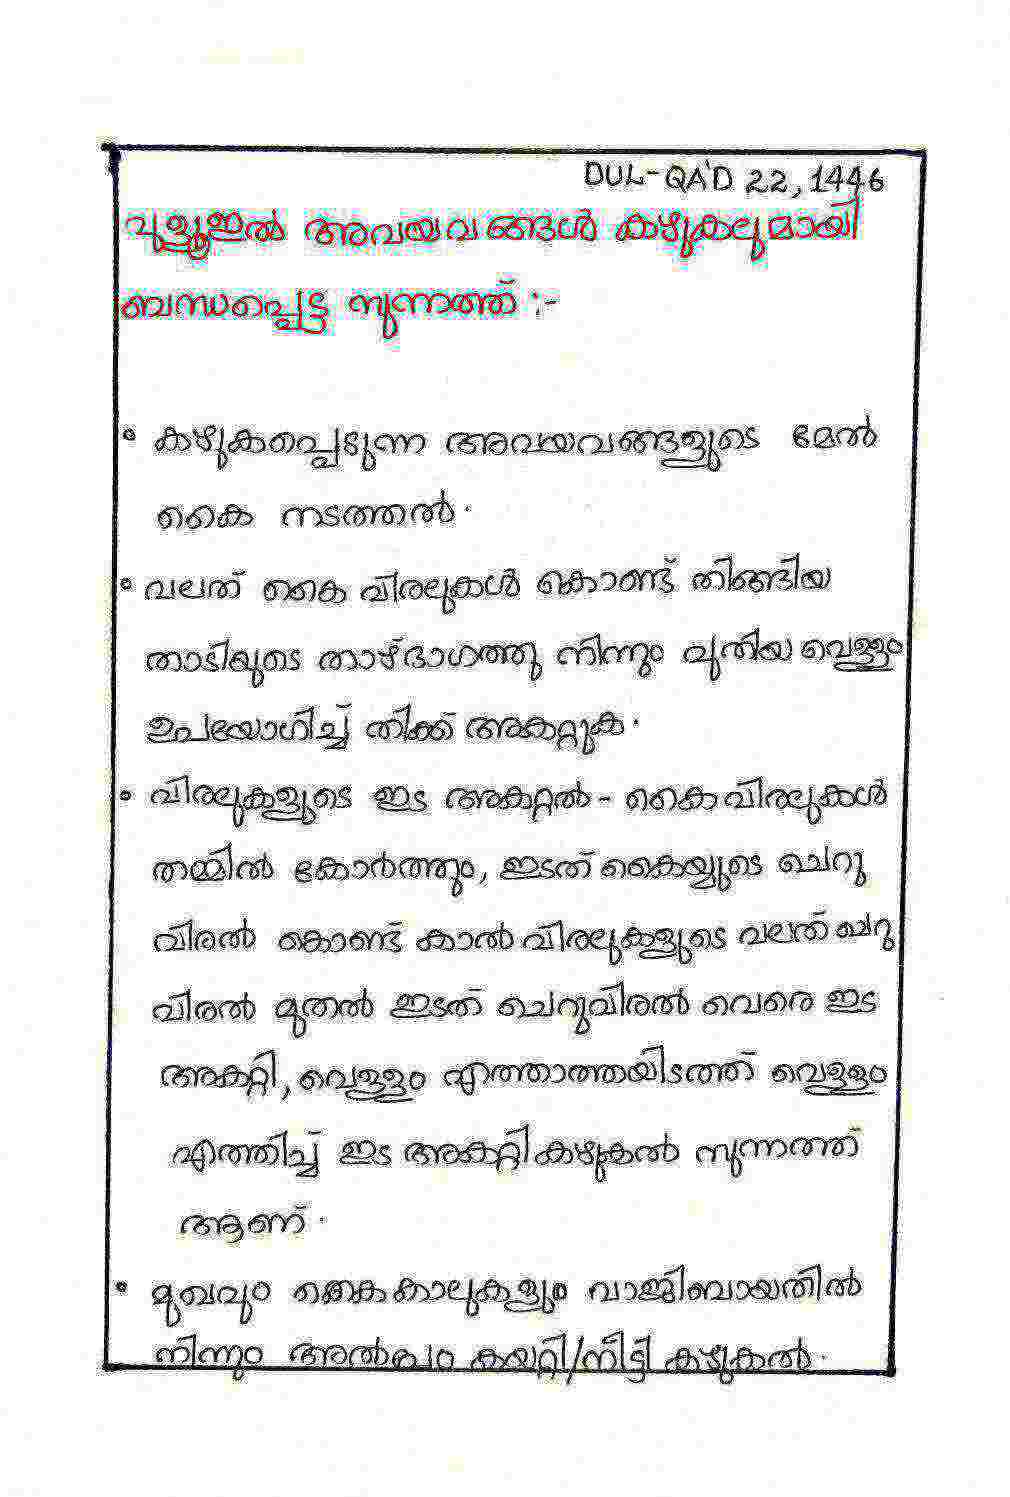 DUL-QA'D 22, 1446
വുളൂഇൽ അവയവങ്ങൾ കഴുകലുമായി
ബന്ധപ്പെട്ട സുന്നത്ത് :-
• കഴുകപ്പെടുന്ന അവയവങ്ങളുടെ മേൽ
കൈ നടത്തൽ.
• വലത് കൈ വിരലുകൾ കൊണ്ട് തിങ്ങിയ
താടിയുടെ താഴ്ഭാഗത്തു നിന്നും പുതിയ വെള്ളം
ഉപയോഗിച്ച് തിക്ക് അകറ്റുക.
• വിരലുകളുടെ ഇട അകറ്റൽ - കൈവിരലുകൾ
തമ്മിൽ കോർത്തും, ഇടത് കൈയ്യുടെ ചെറു
വിരൽ കൊണ്ട് കാൽ വിരലുകളുടെ വലത് ചെറു
വിരൽ മുതൽ ഇടത് ചെറുവിരൽ വെരെ ഇട
അകറ്റി, വെള്ളം എത്താത്തയിടത്ത് വെള്ളം
എത്തിച്ച് ഇട അകറ്റി കഴുകൽ സുന്നത്ത്
ആണ്.
• മുഖവും കൈകാലുകളും വാജിബായതിൽ
നിന്നും അൽപ്പം കയറ്റി/നീട്ടി കഴുകൽ.